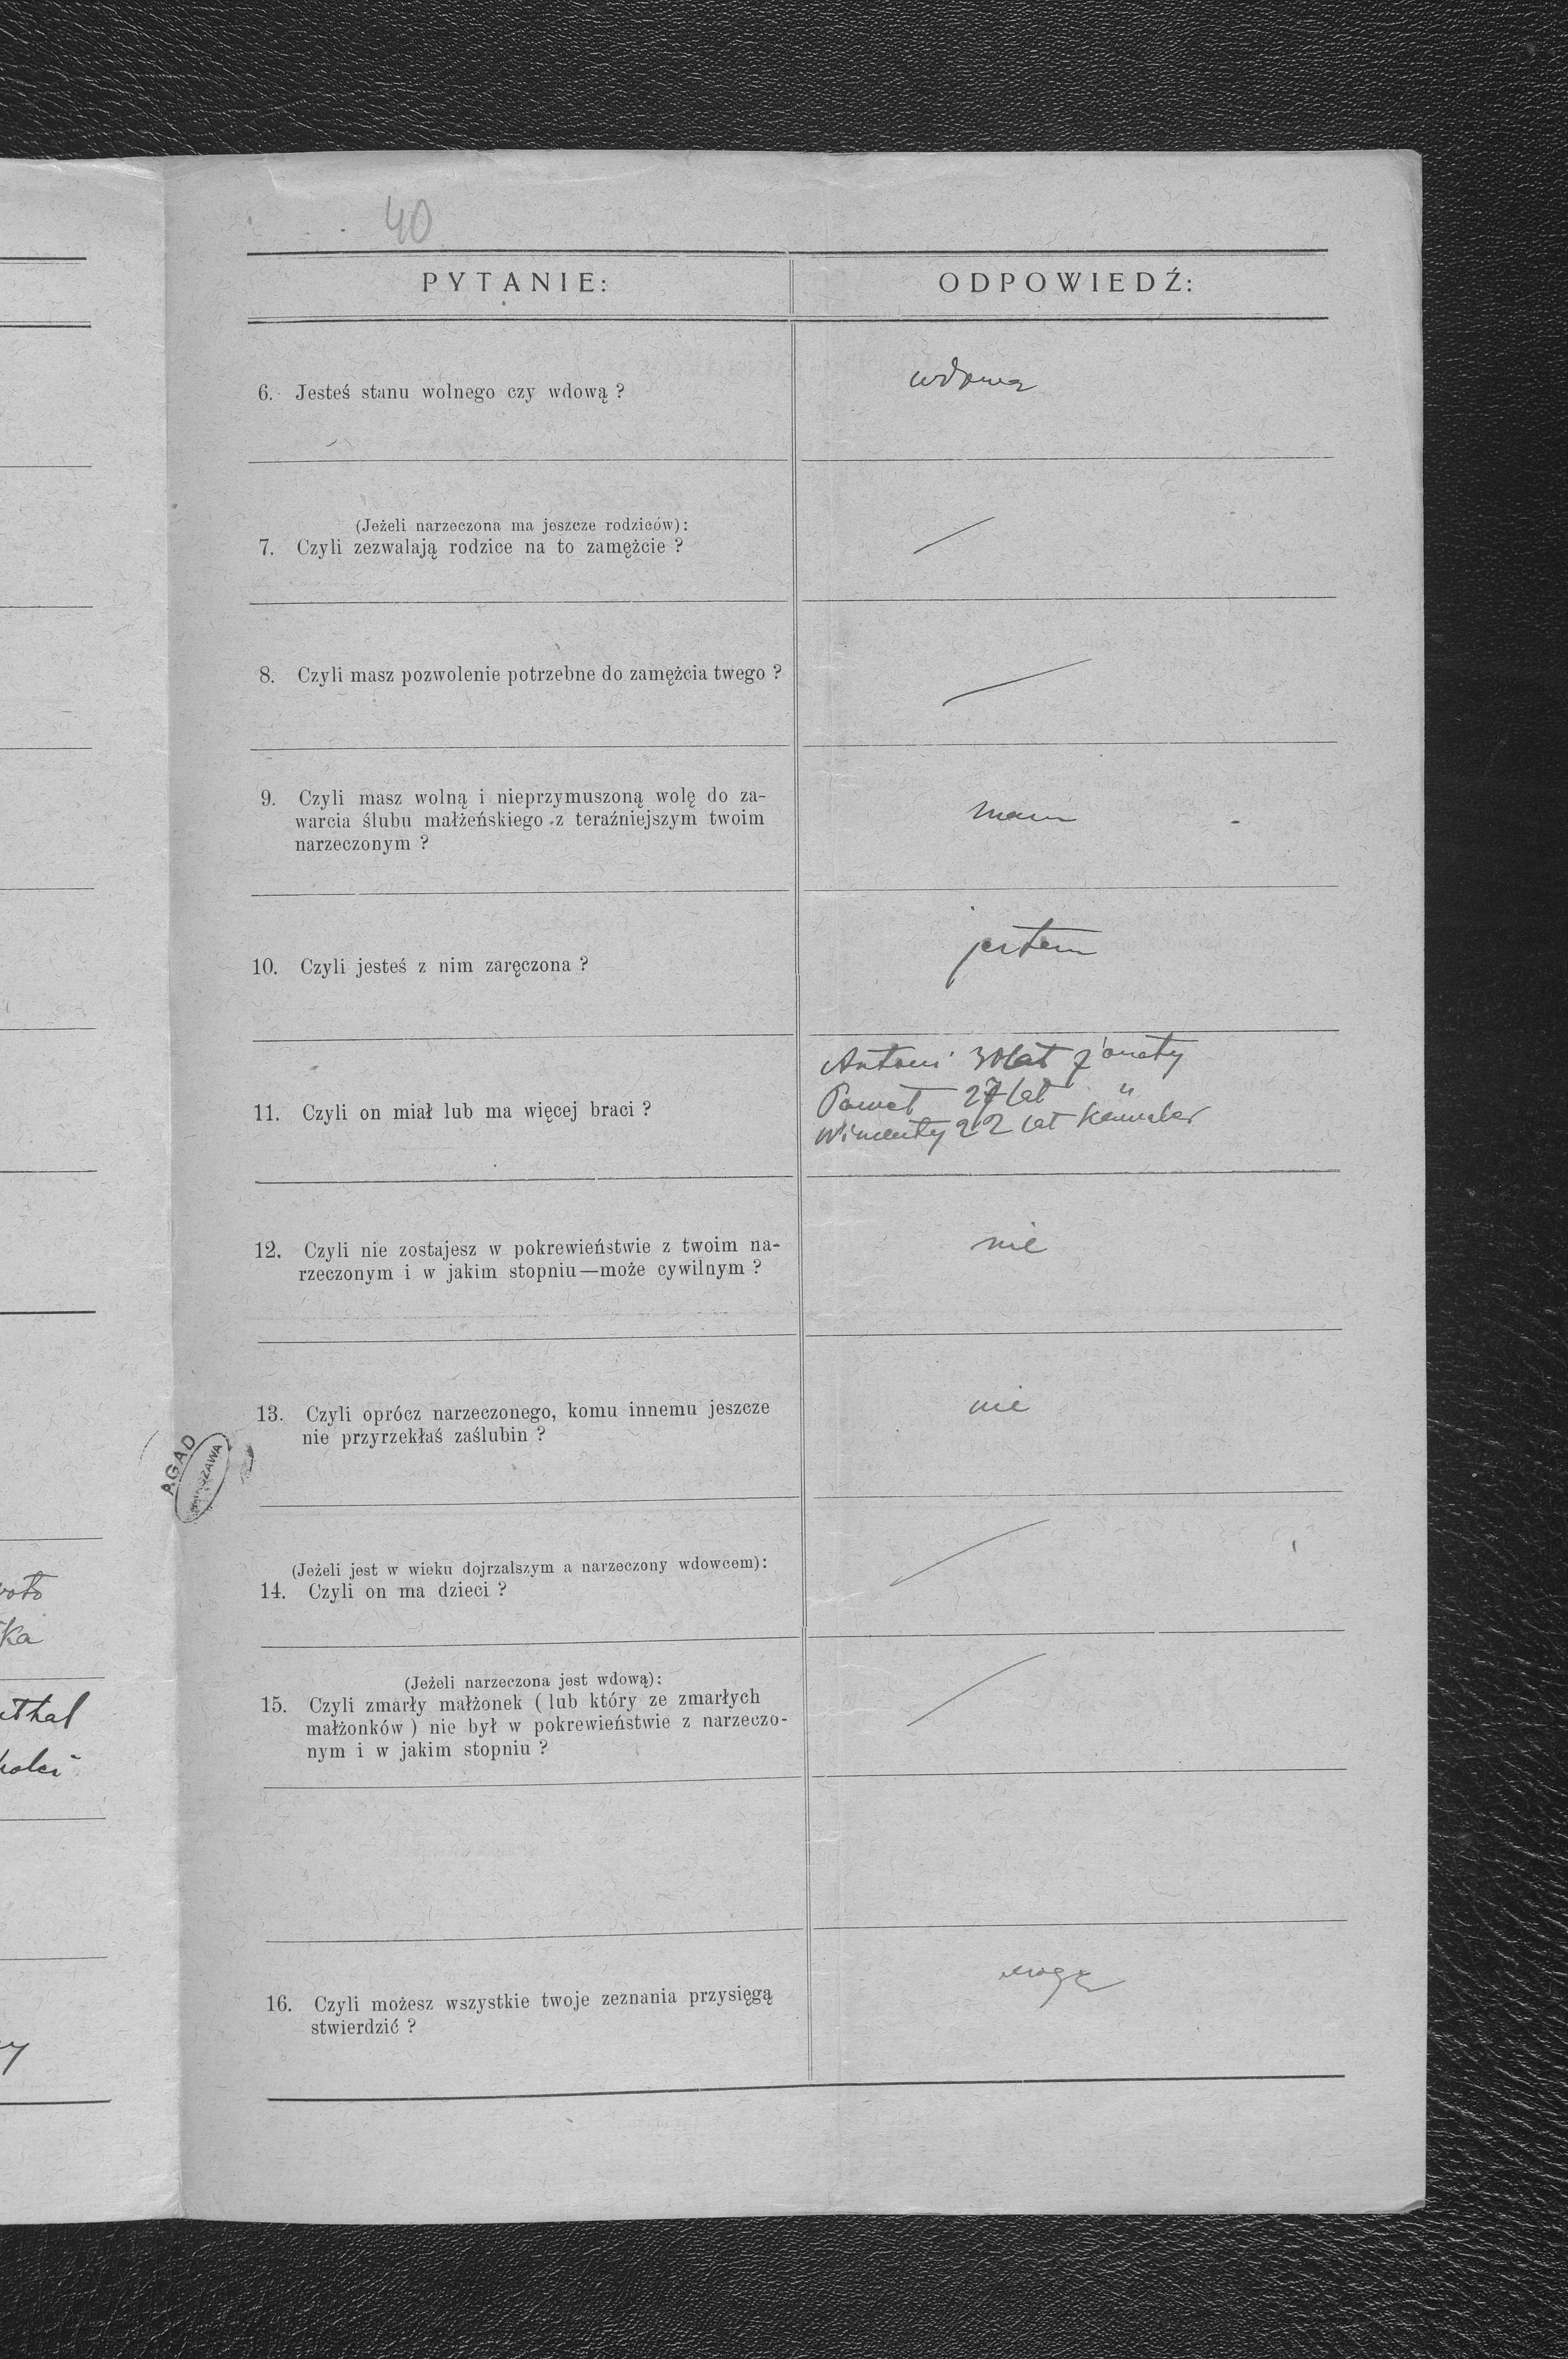 40
PYTANIE:
ODPOWIEDŹ:
6. Jesteś stanu wolnego czy wdową ?
wdową
(Jeżeli narzeczona ma jeszcze rodziców):
7. Czyli zezwalają rodzice na to zamężcie ?
8. Czyli masz pozwolenie potrzebne do zamężcia twego ?
9. Czyli masz wolną i nieprzymuszoną wolę do za-
warcia ślubu małżeńskiego z teraźniejszym twoim
narzeczonym ?
mam
10. Czyli jesteś z nim zaręczona ?
jestem
11. Czyli on miał lub ma więcej braci ?
Antoni 30 lat żonaty
Paweł 27 lat "
Wincenty 22 lat kawaler
12. Czyli nie zostajesz w pokrewieństwie z twoim na-
rzeczonym i w jakim stopniu—może cywilnym ?
nie
13. Czyli oprócz narzeczonego, komu innemu jeszcze
nie przyrzekłaś zaślubin ?
nie
AGAD
WARSZAWA
(Jeżeli jest w wieku dojrzalszym a narzeczony wdowcem):
14. Czyli on ma dzieci ?
(Jeżeli narzeczona jest wdową):
15. Czyli zmarły małżonek ( lub który ze zmarłych
małżonków ) nie był w pokrewieństwie z narzeczo-
nym i w jakim stopniu ?
16. Czyli możesz wszystkie twoje zeznania przysięgą
stwierdzić ?
mogę